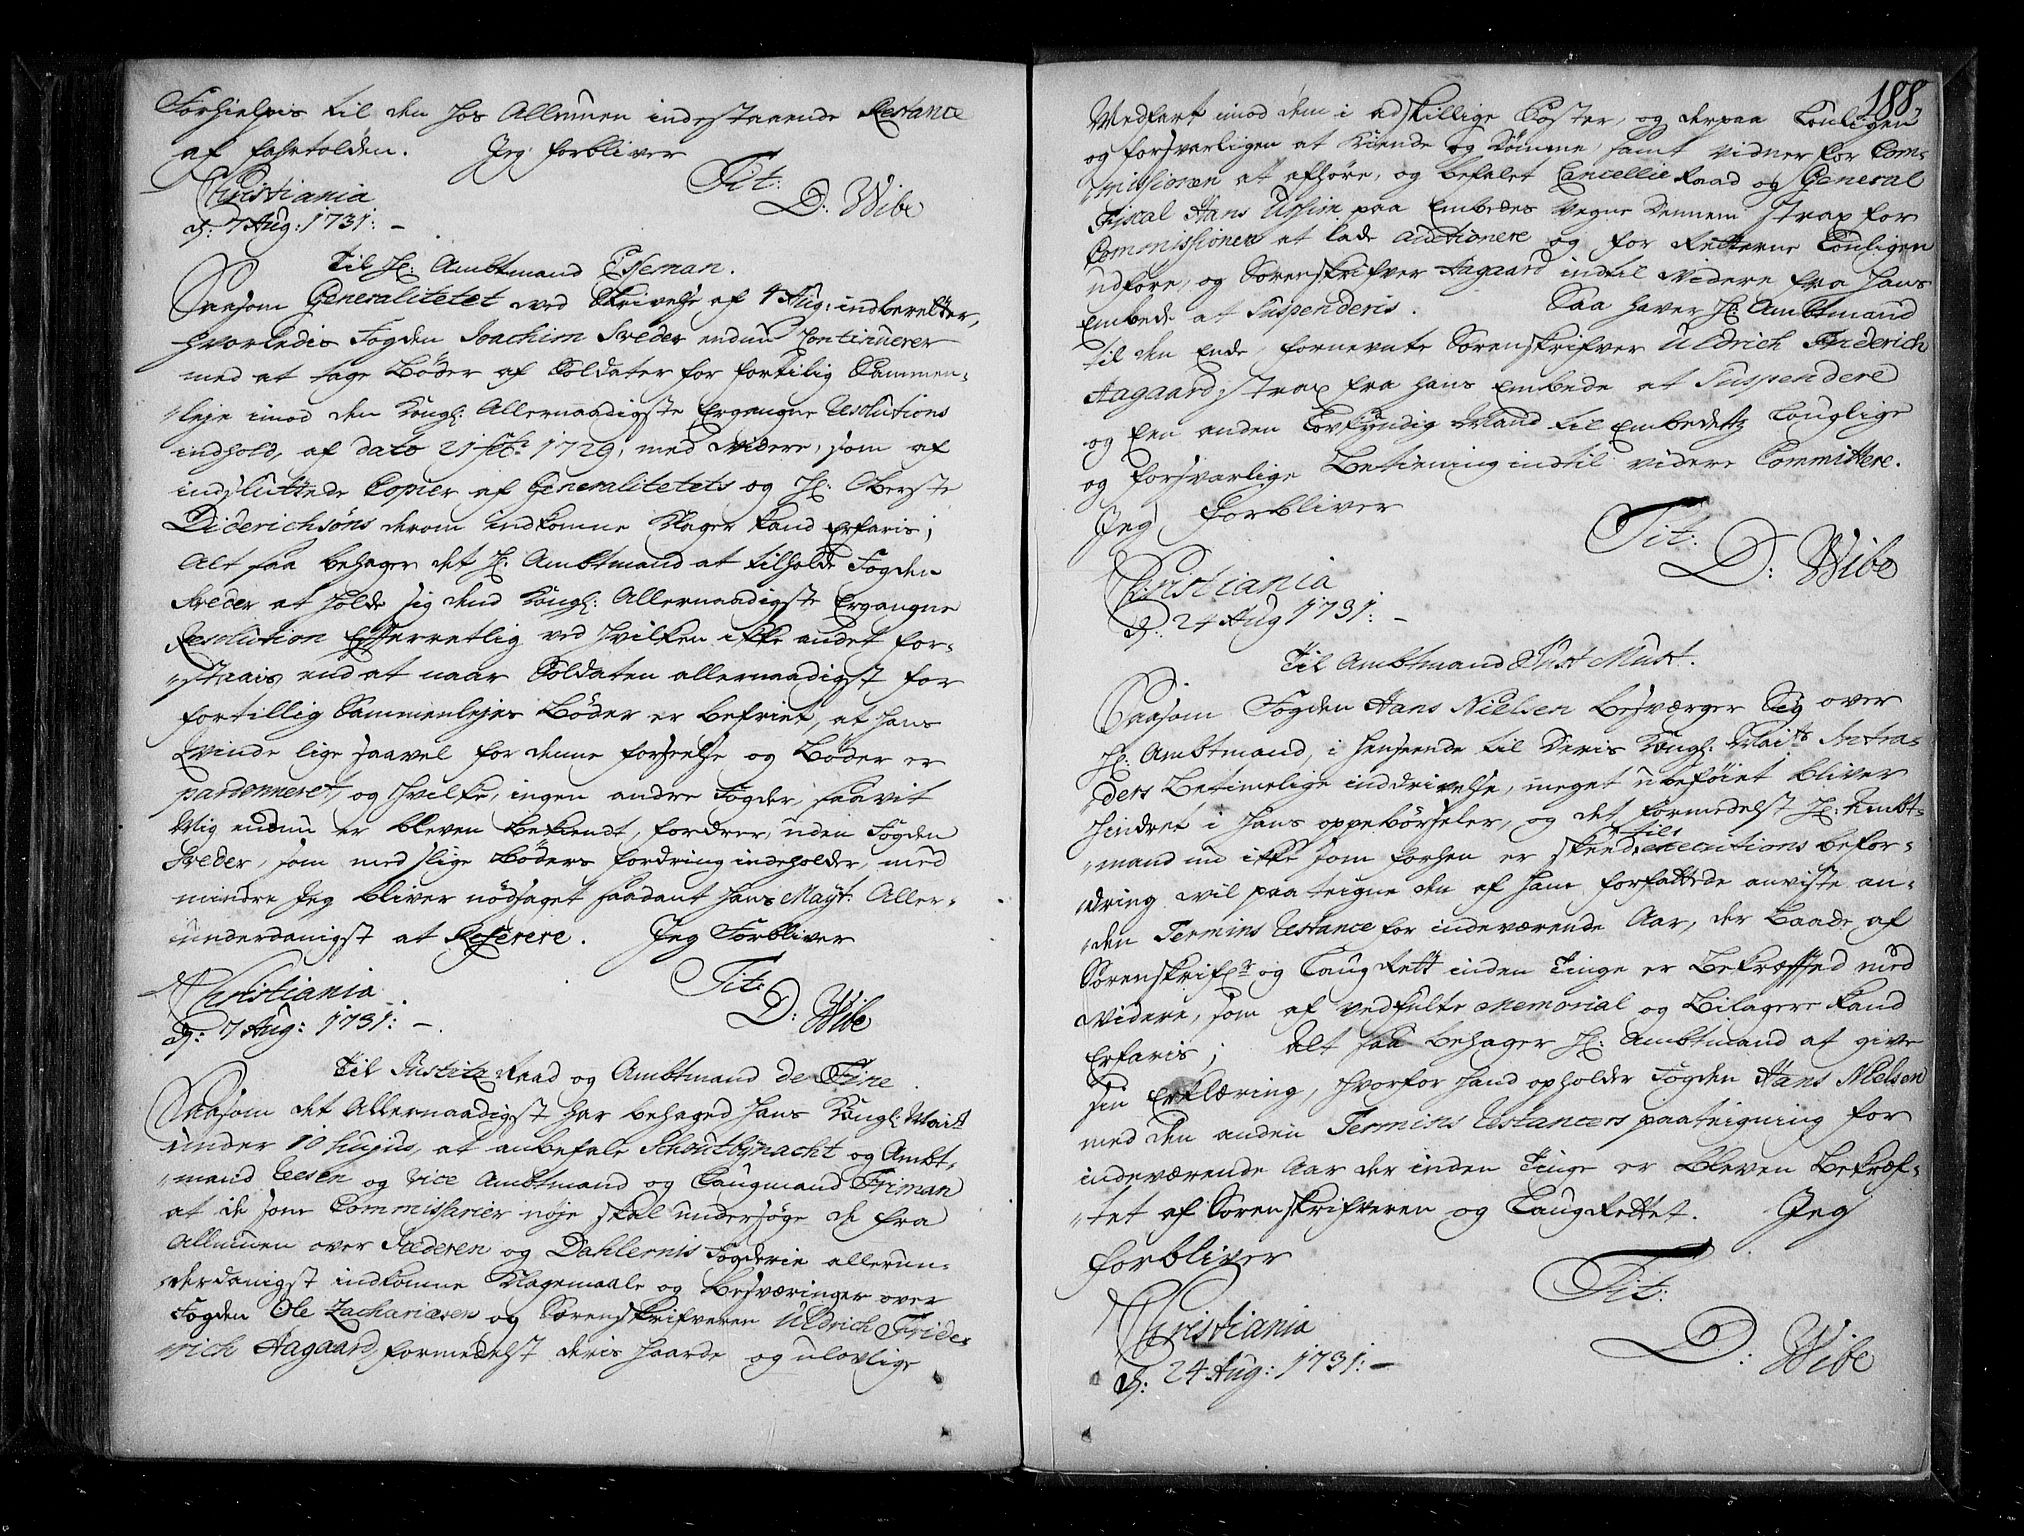 Forhielpis til den hos Allmuen indestaaende Restance
af fahrtolden. Jeg forbliver
Tit:
Christiania D: Wibe
d: 7 Aug: 1731: –
Til H: Ambtmand
Saasom Generalitetet ved Skrivelse af 4 Aug: indberetter,
hvorledis Fogden Joachim Sreder endnu Continuerer
med at tage Bøder af Soldater for fortilig Sammen-
leje imod den Kongl: Allernaadigste Ergangne Resolutions
indhold, af dato 21 1729, med videre, som af
indsluttede Copier af Generalitetets og H: Oberste
Diderichsøns derom indkomne Klager kand Erfaris;
Alt saa behager det H: Ambtmand at tilholde Fogden
Sreder at holde sig dend Kongl: Allernaadigste Ergangne
Resolution Efterretlig ved hvilken ikke andet for-
staais end at naar Soldaten allernaadigst for
fortillig Sammenlejes Bøder er befriet, at hans
Qvinde lige saavel for denne forseelse og Bøder er
pardonneret, og hvilke, ingen andre Fogder, saavit
Mig endnu er bleven bekiendt, fordrer, uden Fogden
Sreder, som med slige Bøders fordring indeholder, med
mindre Jeg bliver nødsaget saadant hans Mayt: Aller-
underdanigst at Referere. Jeg Forbliver
Tit:
Christiania D: Wibe
d: 7 Aug: 1731: –
Til Justitz Raad og Ambtmand de Fine
Saasom det Allernaadigst har behaged Hans Kongl: Maitt
under 10 hujus, at anbefale Schoutbynacht og Ambt-
mand og vice Ambtmand og Laugmand Friman
at de som Commissarier nøje skal undersøge de fra
Allmuen over Jæderen og Dahlernis Fogderie allerun-
derdanigst indkomne Klagemaale og Besværinger over
Fogden Ole Zachariæsen og Sorenskrifveren Uldrich Fride-
rich Aagaard, formedelst deris haarde og ulovlige
188
Medfart imod dem i adskillige Poster, og derpaa Louligen
og forsvarligen at Kiende og Dømme, samt vidner for Com-
missionen at afhøre, og befalet Cancellie Raad og General
Fiscal Hans paa Embedes Vegne Dennem strax for
Commissionen at lade auctionere og for Retterne Louligen
udføre, og Sorenskrifver Aagaard indtil videre fra Hans
Embede at Suspenderis. Saa haver H: Ambtmand
til den Ende, fornevnte Sorenskrifver Uldrich Friderich
Aagaard, strax fra hans Embede at Suspendere
og Een anden Lovkyndig Mand til Embedetz Louglige
og forsvarlige Betiening indtil videre Committere.
Jeg forbliver
Tit:
Christiania D: Wibe
d: 24 Aug 1731: –
Til Ambtmand Just Must.
Saasom Fogden Hans Nielsen besværger Sig over
H: Ambtmand, i henseende til Deris Kongl: Maits Intra-
ders Betimelige inddrivelse, meget ubeføiet bliver
hindret i hans oppebørseler, og det formedelst H: Ambt-
mand nu ikke som forhen er skeed, til executions befor-
dring vil paateigne den af ham forfattede anviste an-
den Termins Restance for indeværende Aar, der Baade af
Sorenskrifr og LaugRett inden Tinge er Bekræfted med
videre, som af vedfulte Memorial og Bilagere kand
Erfaris; Alt saa behager H: Ambtmand at give
sin Erklæring, hvorfor hand opholder Fogden Hans Nielsen
med den anden Termins Restancers paateigning for
indeværende Aar der inden Tinge er bleven Bekræf-
tet af Sorenskrifveren og LaugRettet. Jeg
forbliver
Tit:
Christiania D: Wibe
d: 24 Aug: 1731: –